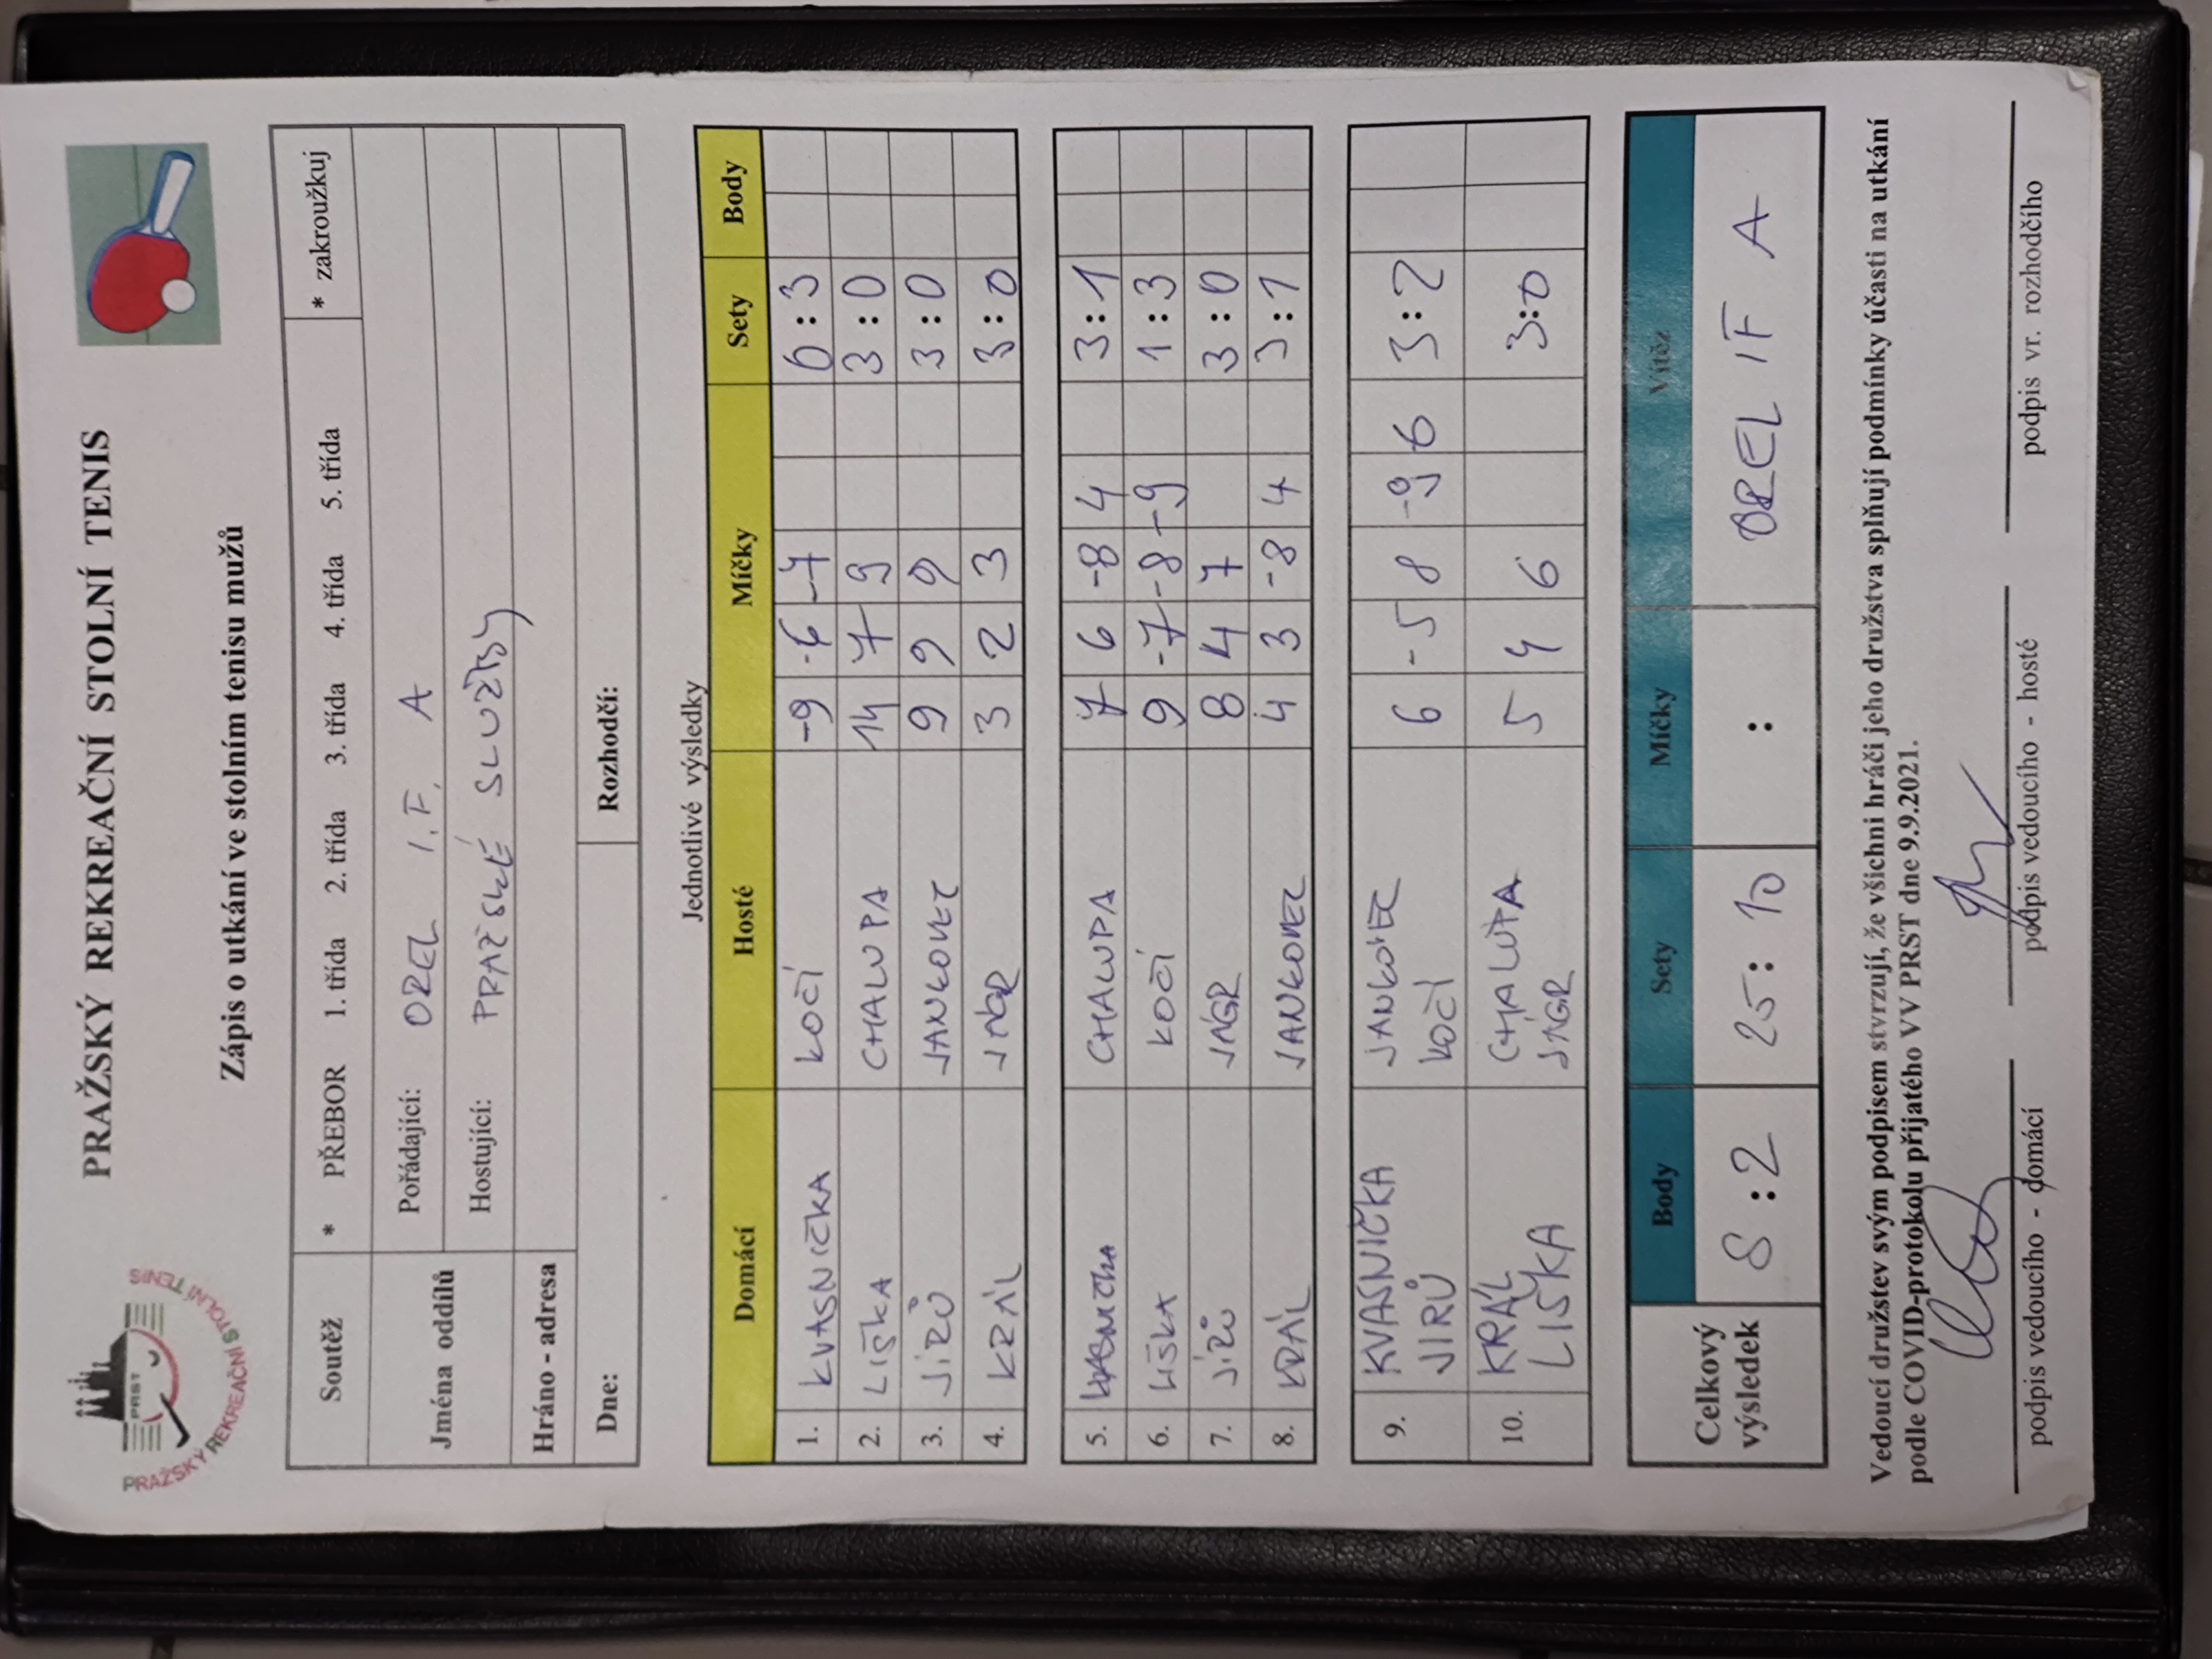 PRAŽSKÝ REKREAČNÍ STOLNÍ TENIS
PRST
PRAŽSKÝ REKREAČNÍ STOLNÍ TENIS
Zápis o utkání ve stolním tenisu mužů
Soutěž * PŘEBOR 1. třída 2. třída 3. třída 4. třída 5. třída * zakroužkuj
Jména oddílů
Pořádající: OREL I.F. A
Hostující: PRAŽSKÉ SLUŽBY
Hráno - adresa
Dne: Rozhodčí:
Jednotlivé výsledky
Domácí Hosté Míčky Sety Body
1. KVASNIČKA KOČÍ -9 -6 -7 0:3
2. LIŠKA CHALUPA 14 7 9 3:0
3. JIRŮ JANKOVEC 9 9 9 3:0
4. KRÁL JÁGR 3 2 3 3:0
5. CHALUPA 7 6 -8 4 3:1
6. LIŠKA KOČÍ 9 -7 -8 -9 1:3
7. JIRŮ JÁGR 8 4 7 3:0
8. KRÁL JANKOVEC 4 3 -8 4 3:1
9. KVASNIČKA JANKOVEC 6 -5 8 -9 6 3:2
JIRŮ KOČÍ
10. KRÁL CHALUPA 5 4 6 3:0
LIŠKA JÁGR
Celkový výsledek
Body Sety Míčky Vítěz
8:2 25:10 : OREL IF A
Vedoucí družstev svým podpisem stvrzují, že všichni hráči jeho družstva splňují podmínky účasti na utkání
podle COVID-protokolu přijatého VV PRST dne 9.9.2021.
podpis vedoucího - domácí podpis vedoucího - hosté podpis vr. rozhodčího